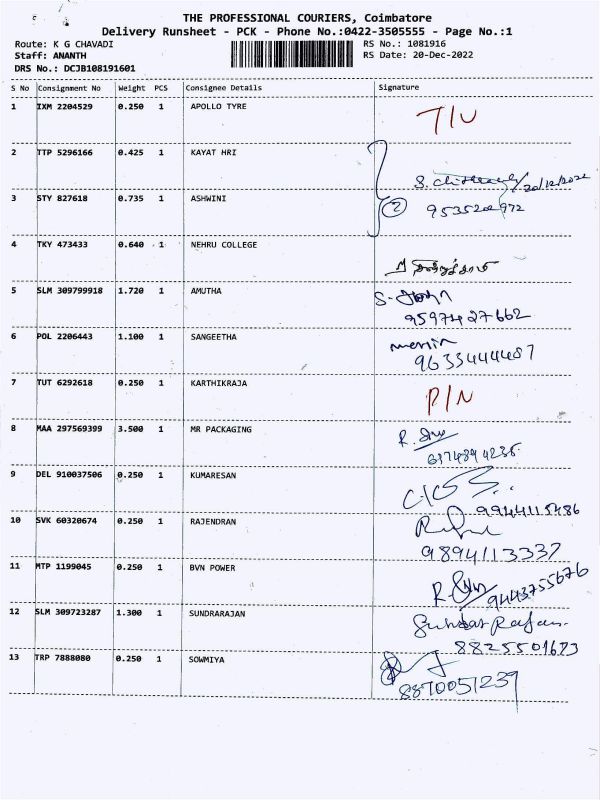 THE PROFESSIONAL COURIERS, Coimbatore
Delivery Runsheet - PCK - Phone No.:0422-3505555 - Page No.:1
Route: K G CHAVADI
RS No.: 1081916
Staff: ANANTH
RS Date: 20-Dec-2022
DRS No.: DCJB108191601
S No Consignment No Weight PCS Consignee Details Signature
1 IXM 2204529 0.250 1 APOLLO TYRE
2 TTP 5296166 0.425 1 KAYAT HRI
20/12/2022
3 STY 827618 0.735 1 ASHWINI
2 9535202972
4 TKY 473433 0.640 1 NEHRU COLLEGE
5 SLM 309799918 1.720 1 AMUTHA
9597427662
6 POL 2206443 1.100 1 SANGEETHA
9633444487
7 TUT 6292618 0.250 1 KARTHIKRAJA
P/N
8 MAA 297569399 3.500 1 MR PACKAGING
9 DEL 910037506 0.250 1 KUMARESAN
9944115486
10 SVK 60320674 0.250 1 RAJENDRAN
9894113337
11 MTP 1199045 0.250 1 BVN POWER
9443755676
12 SLM 309723287 1.300 1 SUNDRARAJAN
8825501673
13 TRP 7888080 0.250 1 SOWMIYA
8870051239